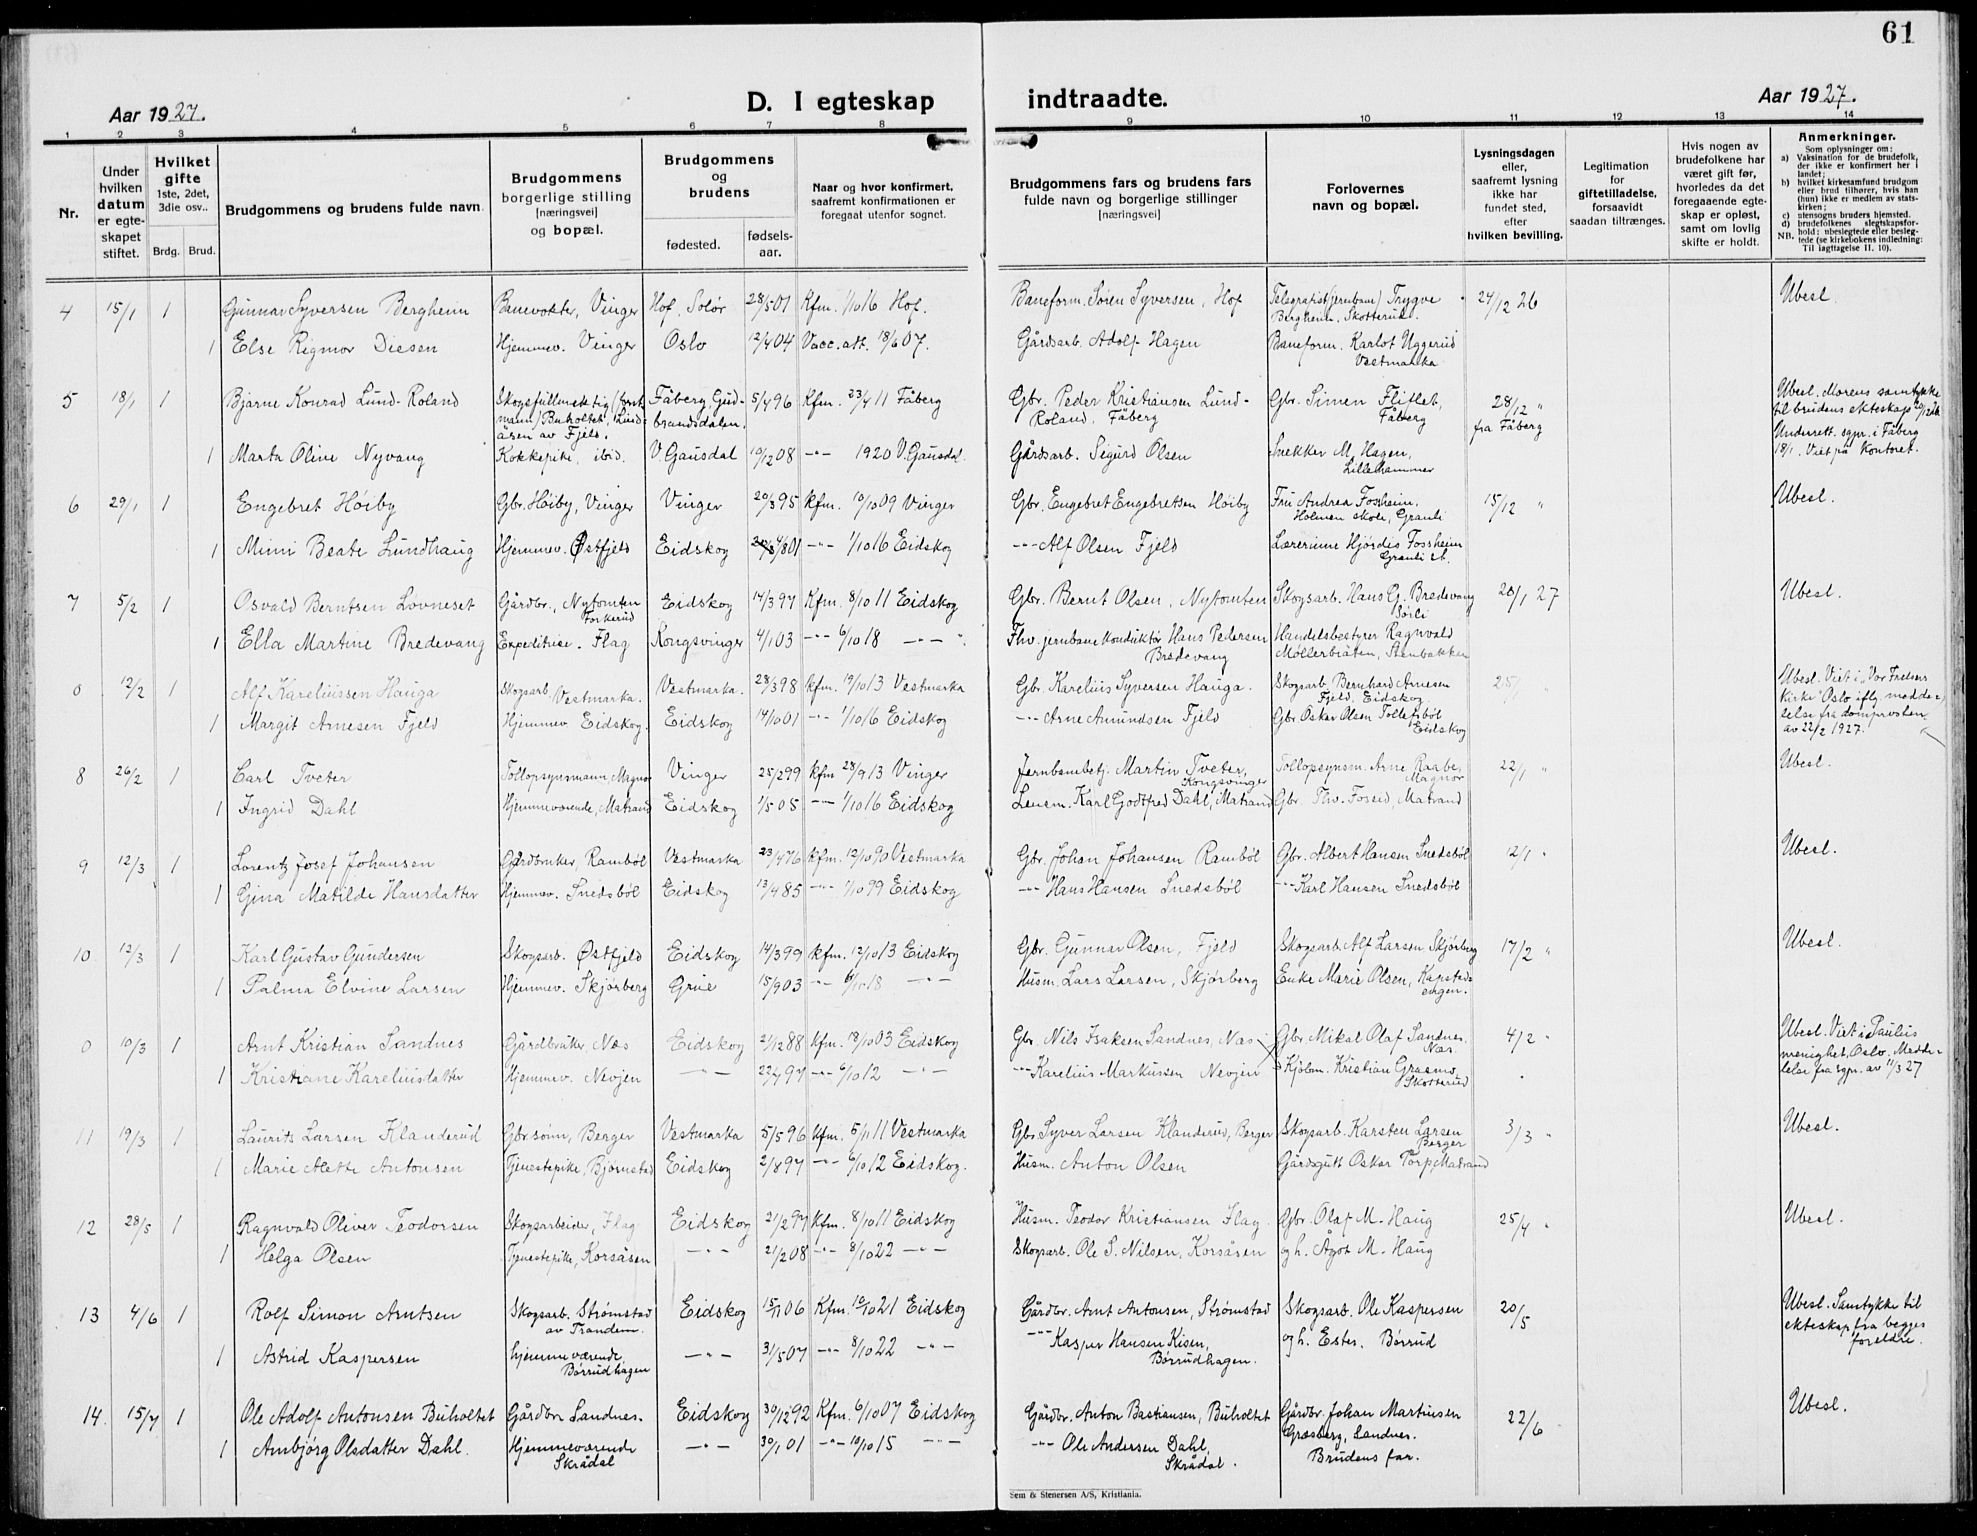 61
Aar 1927.
D. I egteskap indtraadte.
Aar 1927.
1 2 3 4 5 6 7 8 9 10 11 12 13 14
Nr.
Under hvilken datum er egteskapet stiftet.
Hvilket gifte 1ste, 2det, 3die osv..
Brdg. Brud.
Brudgommens og brudens fulde navn.
Brudgommens borgerlige stilling [næringsvei] og bopæl.
Brudgommens og brudens
fødested.
fødselsaar.
Naar og hvor konfirmert, saafremt konfirmationen er foregaat utenfor sognet.
Brudgommens fars og brudens fars fulde navn og borgerlige stillinger [næringsvei]
Forlovernes navn og bopæl.
Lysningsdagen eller, saafremt lysning ikke har fundet sted, efter hvilken bevilling.
Legitimation for giftetilladelse, forsaavidt saadan tiltrænges.
Hvis nogen av brudefolkene har været gift før, hvorledes da det foregaaende egteskap er opløst, samt om lovlig skifte er holdt.
Anmerkninger.
Som oplysninger om:
a) Vaksination for de brudefolk, der ikke er konfirmert her i landet;
b) hvilket kirkesamfund brudgom eller brud tilhører, hvis han (hun) ikke er medlem av statskirken;
c) utensogns bruders hjemsted.
d) brudefolkenes slegtskapsforhold: ubeslegtede eller beslegtede (se kirkebokens indledning: NB. Til iagttagelse II. 10).
4 15/1 1 Gunnar Syversen Bergheim Banevokter, Vinger Hof, Solør 28/5 01 Kfm. 1/10 16 Hof. Baneform. Søren Syversen, Hof Telegrafist (jernbane) Trygve Bergheim. Skotterud. 24/12 26 Ubesl.
1 Else Rigmor Diesen Hjemmev. Vinger Oslo 12/4 04 Vacc.att. 18/6 07. Gårdsarb. Adolf Hagen Baneform. Karlot Uggerud Vestmarka
5 18/1 1 Bjarne Konrad Lund-Roland Skogsfullmektig (forstmann) Buholtet, Lindåsen av Fjeld. Fåberg, Gudbrandsdalen. 5/4 96 Kfm. 23/4 11 Fåberg Gbr. Peder Kristiansen Lund-Roland. Fåberg Gbr. Simen Flitlet, Fåberg 28/12 " fra Fåberg Ubesl. Morens samtykke til brudens ekteskap 20/12 26 Underrett. sgpr. i Fåberg 18/1. Viet på kontoret.
1 Marta Oline Nyvang Kokkepike, ibid. V. Gausdal 19/12 08 -"- 1920 V. Gausdal. Gårdsarb. Sigurd Olsen Snekker M. Hagen, Lillehammer
6 29/1 1 Engebret Høiby Gbr. Høiby, Vinger Vinger 20/3 95 kfm. 10/10 09 Vinger Gbr. Engebret Engebretsen Høiby Fru Andrea Fossheim. Holmen skole, Granli 15/12 " Ubesl.
1 Mimi Beate Lundhaug Hjemmev. Østfjeld Eidskog 4/8 01 -"- 1/10 16 Eidskog -"- Alf Olsen Fjeld Lærerinne Hjørdis Fossheim Granli st.
7 5/2 1 Osvald Berntsen Lovneset Gårdbr., Nytomten Forkerud Eidskog 14/3 97 Kfm. 8/10 11 Eidskog Gbr. Bernt Olsen, Nytomten Skogsarb. Hans G. Bredevang Sørli 20/1 27 Ubesl.
1 Ella Martine Bredevang Expeditrise. Flag Kongsvinger 4/1 03 -"- 6/10 18 -"- Fhv. jernbanekonduktør Hans Pedersen Bredevang Handelsbestyrer Ragnvald Møllerbråten, Stenbakken
0 12/2 1 Alf Kareliussen Hauga Skogsarb. Vestmarka. Vestmarka. 28/3 98 kfm. 19/10 13 Vestmarka Gbr. Karelius Syversen Hauga. Skogsarb. Bernhard Arnesen Fjeld, Eidskog 25/1 " Ubesl. Viet i "Vor Frelsers kirke" Oslo iflg. meddelelse fra domprosten av 22/2 1927.
1 Margit Arnesen Fjeld Hjemmev. Eidskog. Eidskog 14/10 01 -"- 1/10 16 Eidskog -"- Arne Amundsen Fjeld Gbr. Oskar Olsen Tollefsbøl Eidskog
8 26/2 1 Carl Tveter Tollopsynsmann, Magnor Vinger 25/2 99 kfm 28/9 13 Vinger Jernbanebetj. Martin Tveter, Kongsvinger Tollopsynsm. Arne Raabe, Magnor 22/1 " Ubesl.
1 Ingrid Dahl Hjemmeværende, Matrand Eidskog 1/5 05 -"- 1/10 16 Eidskog Lensm. Karl Godtfred Dahl, Matrand Gbr. Thv. Fosseid, Matrand
9 12/3 1 Lorentz Josef Johansen Gårdbruker, Rambøl Vestmarka 23/4 76 kfm. 12/10 90 Vestmarka Gbr. Johan Johansen Rambøl Gbr. Albert Hansen Snedsbøl 12/1 " Ubesl.
1 Gina Matilde Hansdatter Hjemmev. Snedsbøl Eidskog 13/4 85 -"- 1/10 99 Eidskog -"- Hans Hansen Snedsbøl -"- Karl Hansen Snedsbøl
10 12/3 1 Karl Gustav Gundersen Skogsarb. Østfjeld Eidskog 14/3 99 kfm. 12/10 13 Eidskog Gbr. Gunnar Olsen, Fjeld Skogsarb. Alf Larsen Skjørberg 17/2 " Ubesl.
1 Palma Elvine Larsen Hjemmev. Skjørberg Grue 15/9 03 -"- 6/10 18 -"- Husm. Lars Larsen, Skjørberg Enke Marie Olsen, Kapstadsengen.
0 10/3 1 Arnt Kristian Sandnes Gårdbruker, Næs Eidskog 21/12 88 kfm. 18/10 03 Eidskog Gbr. Nils Isaksen Sandnes, Næs Gbr. Mikal Olaf Sandnes, Næs 4/2 " Ubesl. Viet i Paulus menighet, Oslo. Meddelelse fra sgpr. av 11/3 27
1 Kristiane Kareliusdatter Hjemmev. Nevjen -"- 22/4 97 -"- 6/10 12 -"- -"- Karelius Markussen Nevjen Kjøbm. Kristian Grasmo, Skotterud
11 19/3 1 Laurits Larsen Klanderud Gbr.sønn, Berger Vestmarka 5/5 96 Kfm. 5/11 11 Vestmarka Gbr. Syver Larsen Klanderud, Berger Skogsarb. Karsten Larsen Berger 3/3 " Ubesl.
1 Marie Alette Antonsen Tjenestepike, Bjørnstad Eidskog 2/8 97 -"- 6/10 12 Eidskog. Husm. Anton Olsen Gårdsgutt Oskar Torp, Matrand
12 28/5 1 Ragnvald Oliver Teodorsen Skogsarbeider, Flag Eidskog 21/2 97 Kfm. 8/10 11 Eidskog Husm. Teodor Kristiansen Flag. Gbr. Olaf M. Haug 25/4 " Ubesl.
1 Helga Olsen Tjenestepike, Korsåsen -"- 21/2 08 -"- 8/10 22 -"- Skogsarb. Ole S. Nilsen, Korsåsen og h. Agot M. Haug
13 4/6 1 Rolf Simon Arntsen Skogsarb. Strømstad av Trandem. Eidskog 15/11 06 Kfm. 10/10 21 Eidskog Gårdbr. Arnt Antonsen, Strømstad Skogsarb. Ole Kaspersen 20/5 Ubesl. Samtykke til ekteskap fra begges foreldre.
1 Astrid Kaspersen hjemmeværende Børrudhagen -"- 31/5 07 -"- 8/10 22 -"- -"- Kasper Hansen Kisen, Børrudhagen. og h. Ester. Børrud
14. 15/7 1 Ole Adolf Antonsen Buholtet Gårdbr. Sandnes. Eidskog 30/12 92 Kfm. 6/10 07 Eidskog Gårdbr. Anton Bastiansen, Buholtet Gårdbr. Johan Martinsen Græsberg, Sandnes. 22/6 Ubesl.
1 Arnbjørg Olsdatter Dahl. Hjemmeværende Skrådal -"- 30/1 01 -"- 10/10 15 -"- -"- Ole Andersen Dahl, Skrådal. Brudens far.
Sem & Stenersen A/S, Kristiania.